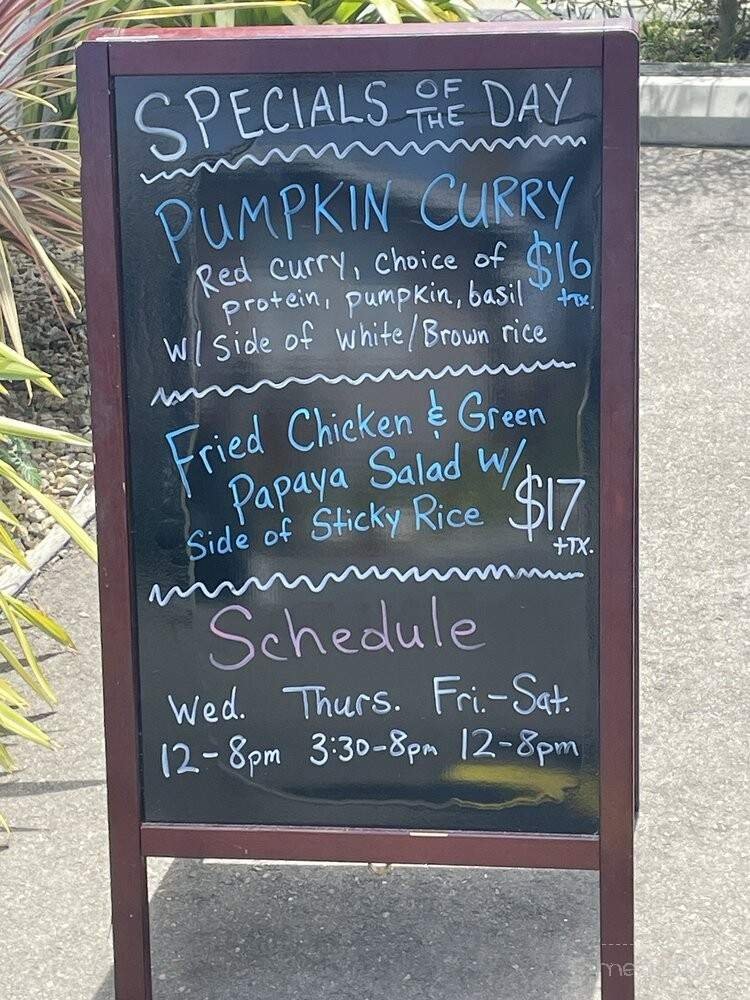 SPECIALS OF THE DAY
PUMPKIN CURRY
Red Curry, choice of $16
protein, pumpkin, basil +tx.
W/ Side of White/Brown rice
Fried Chicken & Green
Papaya Salad W/
Side of Sticky Rice $17
+TX.
Schedule
Wed. Thurs. Fri.-Sat.
12-8pm 3:30-8pm 12-8pm